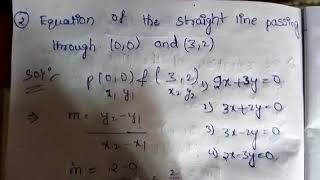 ② Equation of the straight line passing
through (0,0) and (3,2)
Solⁿ: P(0,0) & (3,2)
x₁ y₁ x₂ y₂
1) 2x+3y=0
2) 3x+2y=0
3) 3x-2y=0
4) 2x-3y=0
⇒ m = y₂-y₁
x₂-x₁
m = 2-0 = 2